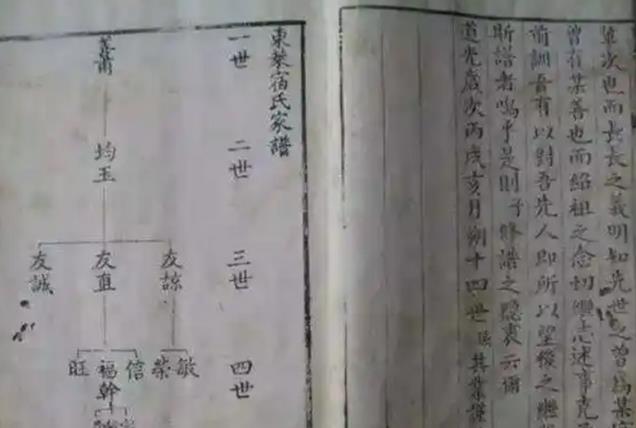 輩次也而長長之義明知先世之曾為某
曾作某善也而紹祖之念切繼志述事克
前訓吾有以對吾先人即所以望後之繼
斯譜者嗚乎是則予修譜之隱衷云爾
道光歲次丙戌亥月朔十四世
東萊宿氏家譜
一世
二世
均玉
三世
友諒
友直
友誠
四世
敏
榮
信
福
幹
旺